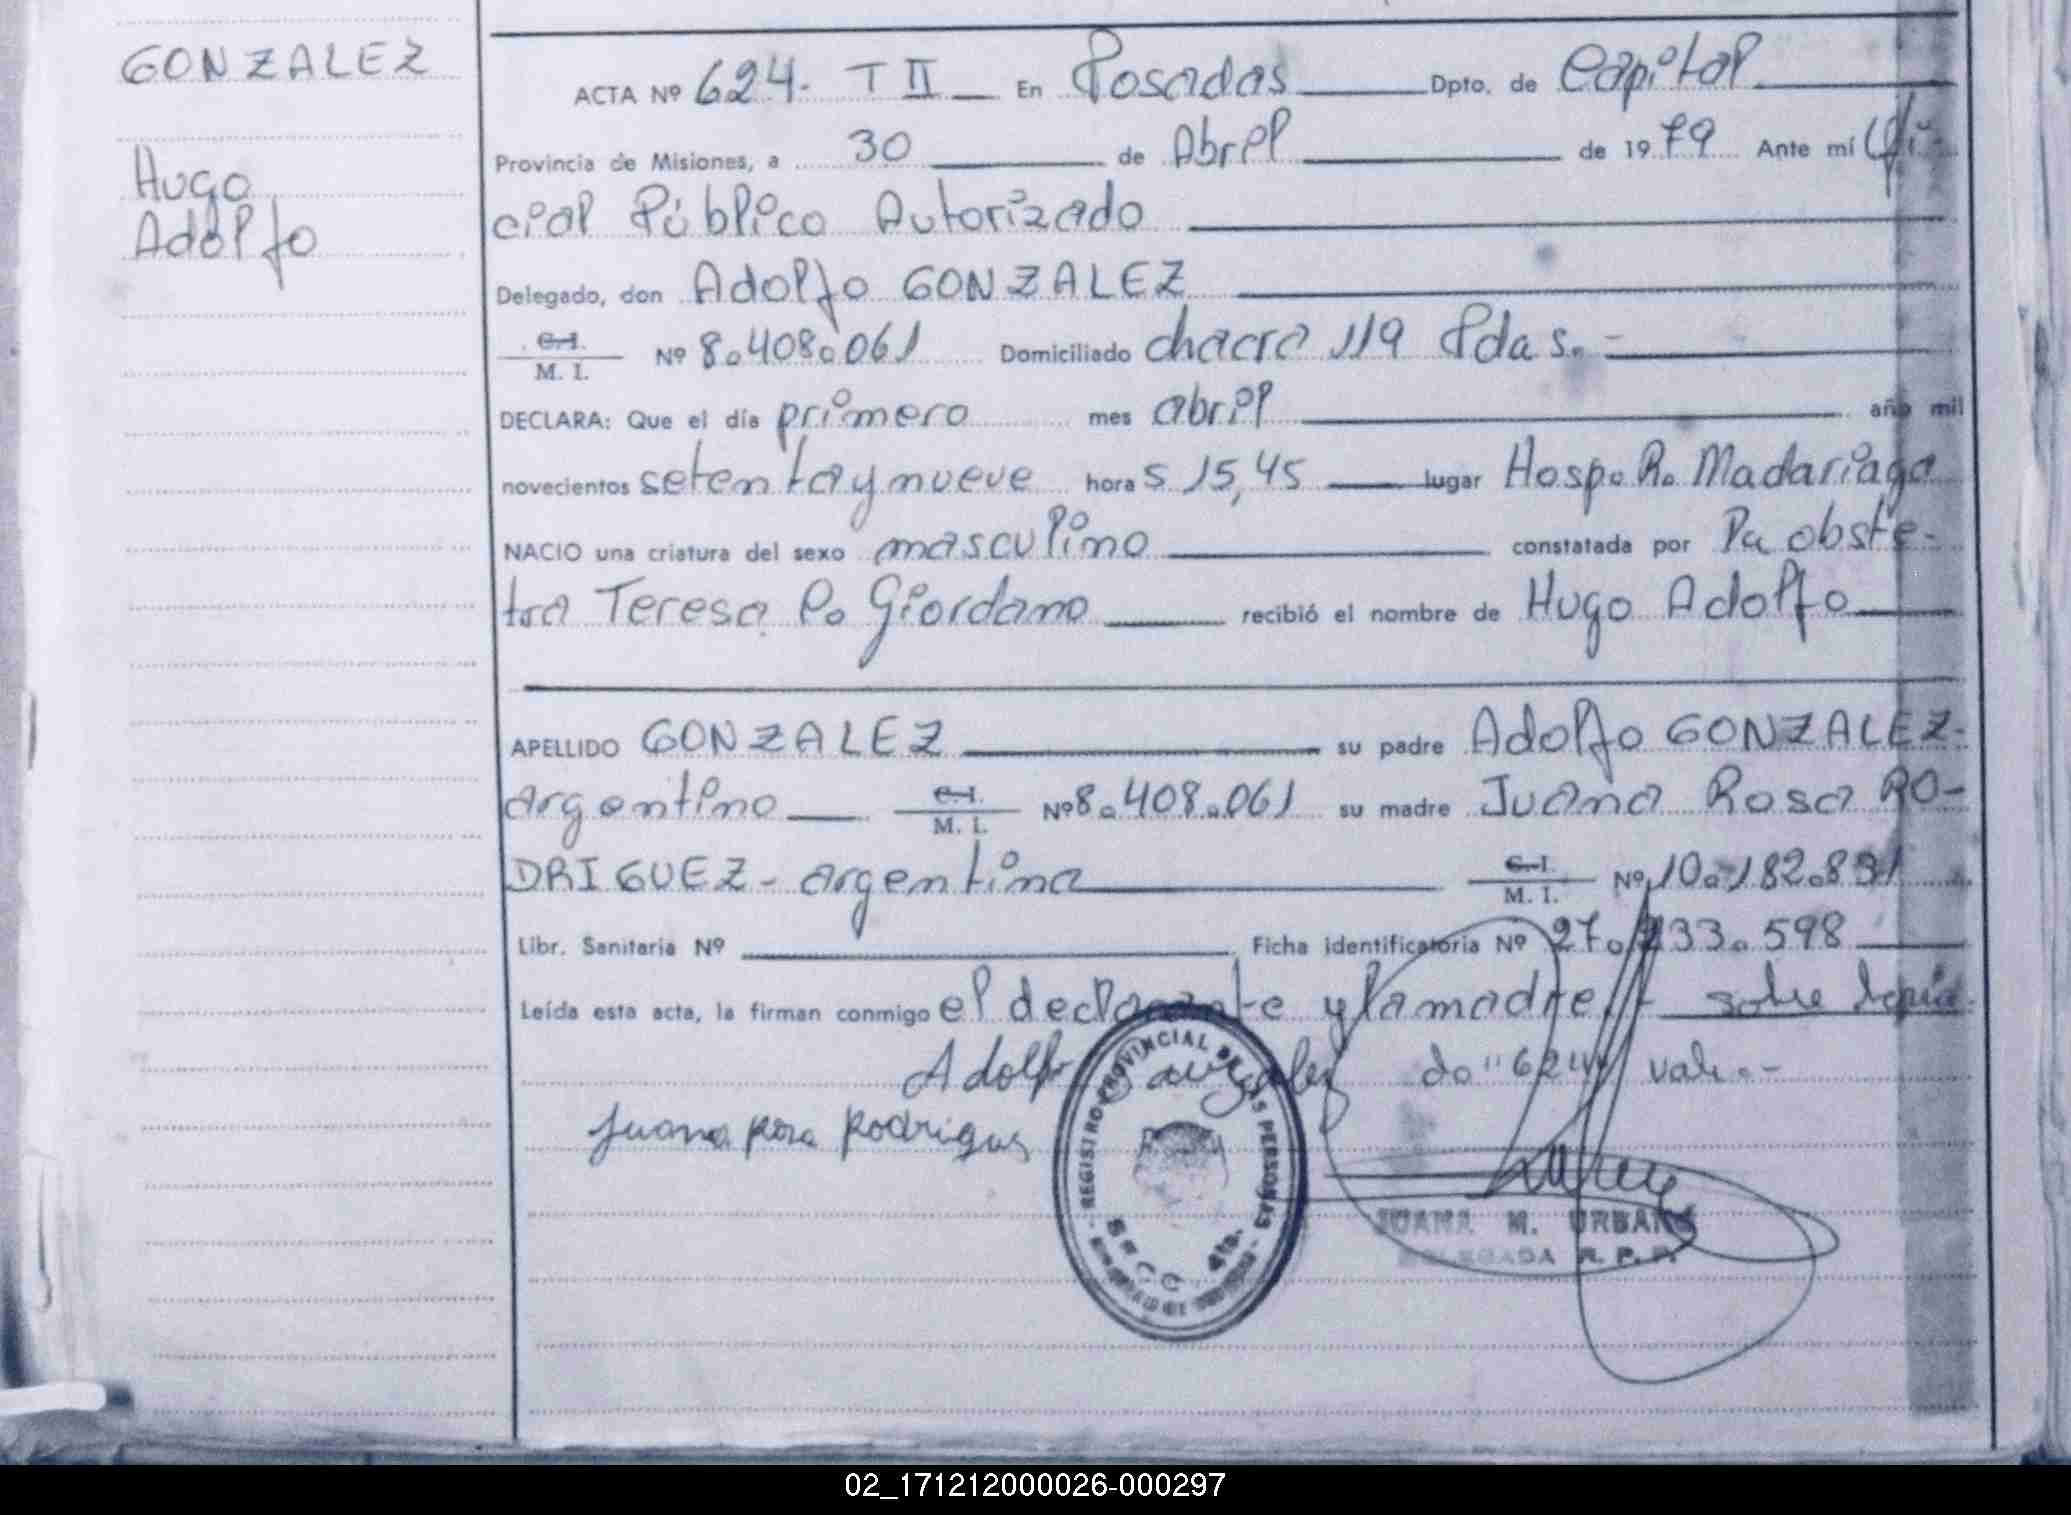 GONZALEZ
Hugo
Adolfo
ACTA Nº 624. T II En Posadas Dpto. de Capital
Provincia de Misiones, a 30 de Abril de 1979 Ante mí Ofi-
cial Público Autorizado
Delegado, don Adolfo GONZALEZ
C.I. M. I. Nº 8.408.061 Domiciliado chacra 119 Pdas.-
DECLARA: Que el día primero mes abril año mil
novecientos setenta y nueve horas 15,45 lugar Hosp. R. Madariaga
NACIO una criatura del sexo masculino constatada por la obste-
tra Teresa P. Giordano recibió el nombre de Hugo Adolfo
APELLIDO GONZALEZ su padre Adolfo GONZALEZ-
argentino C.I. M. I. Nº 8.408.061 su madre Juana Rosa RO-
DRIGUEZ - argentina C.I. M. I. Nº 10.182.831
Libr. Sanitaria Nº Ficha identificatoria Nº 27.233.598
Leída esta acta, la firman conmigo el declarante y la madre.- sobre
Adolfo Gonzalez do "624" vale.-
Juana Rosa Rodrigues
REGISTRO PROVINCIAL DE LAS PERSONAS
JUANA M. URBAN
DELEGADA R. P. P.
02_171212000026-000297